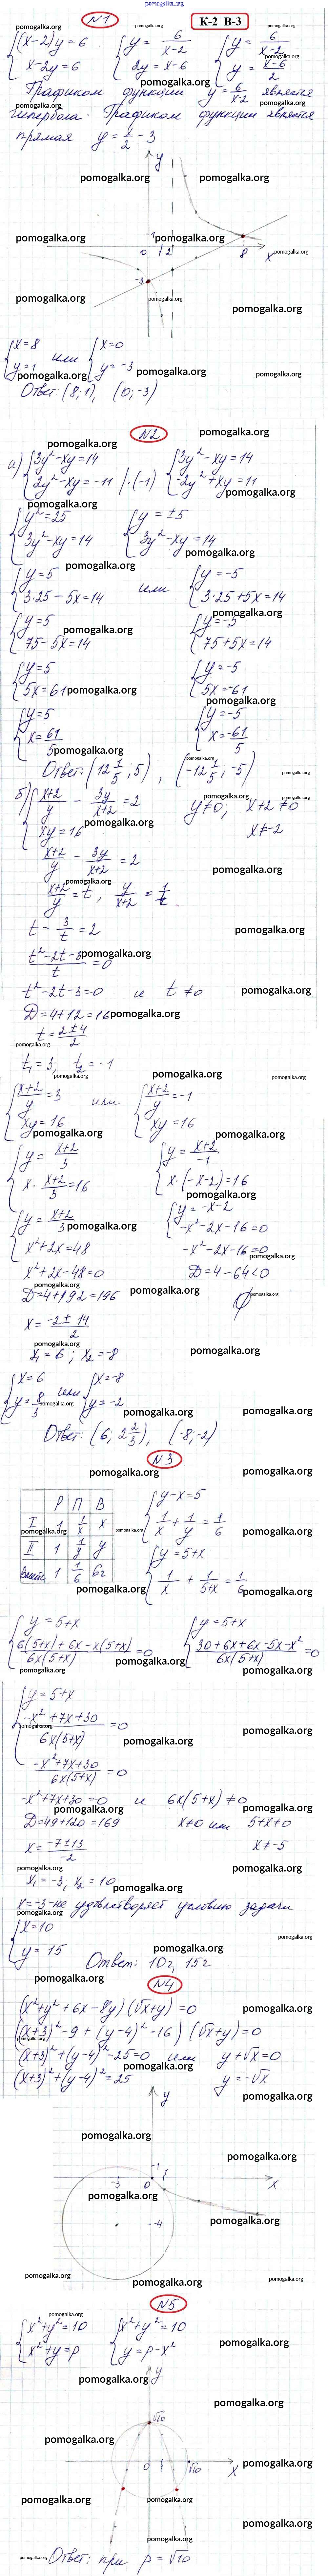 pomogalka.org
N1
К-2 В-3
{(x-2)y=6 {y= 6/(x-2) {y= 6/(x-2)
{x-2y=6 {2y=x-6 {y= (x-6)/2
Графиком функции y= 6/(x-2) является
гипербола. Графиком функции является
прямая y= x/2 - 3
y
1
0 1 2 8 x
-3
{x=8 или {x=0
{y=1 {y=-3
Ответ: (8;1), (0;-3)
N2
а) {3y²-xy=14 {3y²-xy=14
{2y²-xy=-11 |·(-1) {-2y²+xy=11
{y²=25 {y=±5
{3y²-xy=14 {3y²-xy=14
{y=5 или {y=-5
{3·25-5x=14 {3·25+5x=14
{y=5 {y=-5
{75-5x=14 {75+5x=14
{y=5 {y=-5
{5x=61 {5x=-61
{y=5 {y=-5
{x= 61/5 {x= -61/5
Ответ: (12 1/5; 5), (-12 1/5; -5)
б) {(x+2)/y - 3y/(x+2) =2 y≠0, x+2≠0
{xy=16 x≠-2
(x+2)/y - 3y/(x+2) =2
(x+2)/y =t, y/(x+2) = 1/t
t - 3/t =2
(t²-2t-3)/t =0
t²-2t-3=0 и t≠0
D=4+12=16
t= (2±4)/2
t₁=3; t₂=-1
{(x+2)/y =3 или {(x+2)/y =-1
{xy=16 {xy=16
{y= (x+2)/3 {y= (x+2)/-1
{x· (x+2)/3 =16 {x·(-x-2)=16
{y= (x+2)/3 {y=-x-2
{x²+2x=48 {-x²-2x-16=0
x²+2x-48=0 -x²-2x-16=0
D=4+192=196 D=4-64<0
x= (-2±14)/2 ∅
x₁=6; x₂=-8
{x=6 или {x=-8
{y= 8/3 {y=-2
Ответ: (6; 2 2/3), (-8;-2)
N3
Р П В {y-x=5
I 1 1/x x {1/x + 1/y = 1/6
II 1 1/y y {y=5+x
вместе 1 1/6 6ч {1/x + 1/(5+x) = 1/6
{y=5+x {y=5+x
{(6(5+x)+6x-x(5+x))/(6x(5+x)) =0 {(30+6x+6x-5x-x²)/(6x(5+x)) =0
{y=5+x
{(-x²+7x+30)/(6x(5+x)) =0
(-x²+7x+30)/(6x(5+x)) =0
-x²+7x+30=0 и 6x(5+x)≠0
D=49+120=169 x≠0 или 5+x≠0
x= (-7±13)/-2 x≠-5
x₁=-3; x₂=10
x=-3-не удовлетворяет условию задачи
{x=10
{y=15 Ответ: 10ч, 15ч
N4
(x²+y²+6x-8y)(√x+y)=0
((x+3)²-9+(y-4)²-16)(√x+y)=0
(x+3)²+(y-4)²-25=0 или y+√x=0
(x+3)²+(y-4)²=25 y=-√x
y
1
-3 0 1 x
-4
N5
{x²+y²=10 {x²+y²=10
{x²+y=p {y=p-x²
y
√10
0 1 √10 x
Ответ: при p=√10